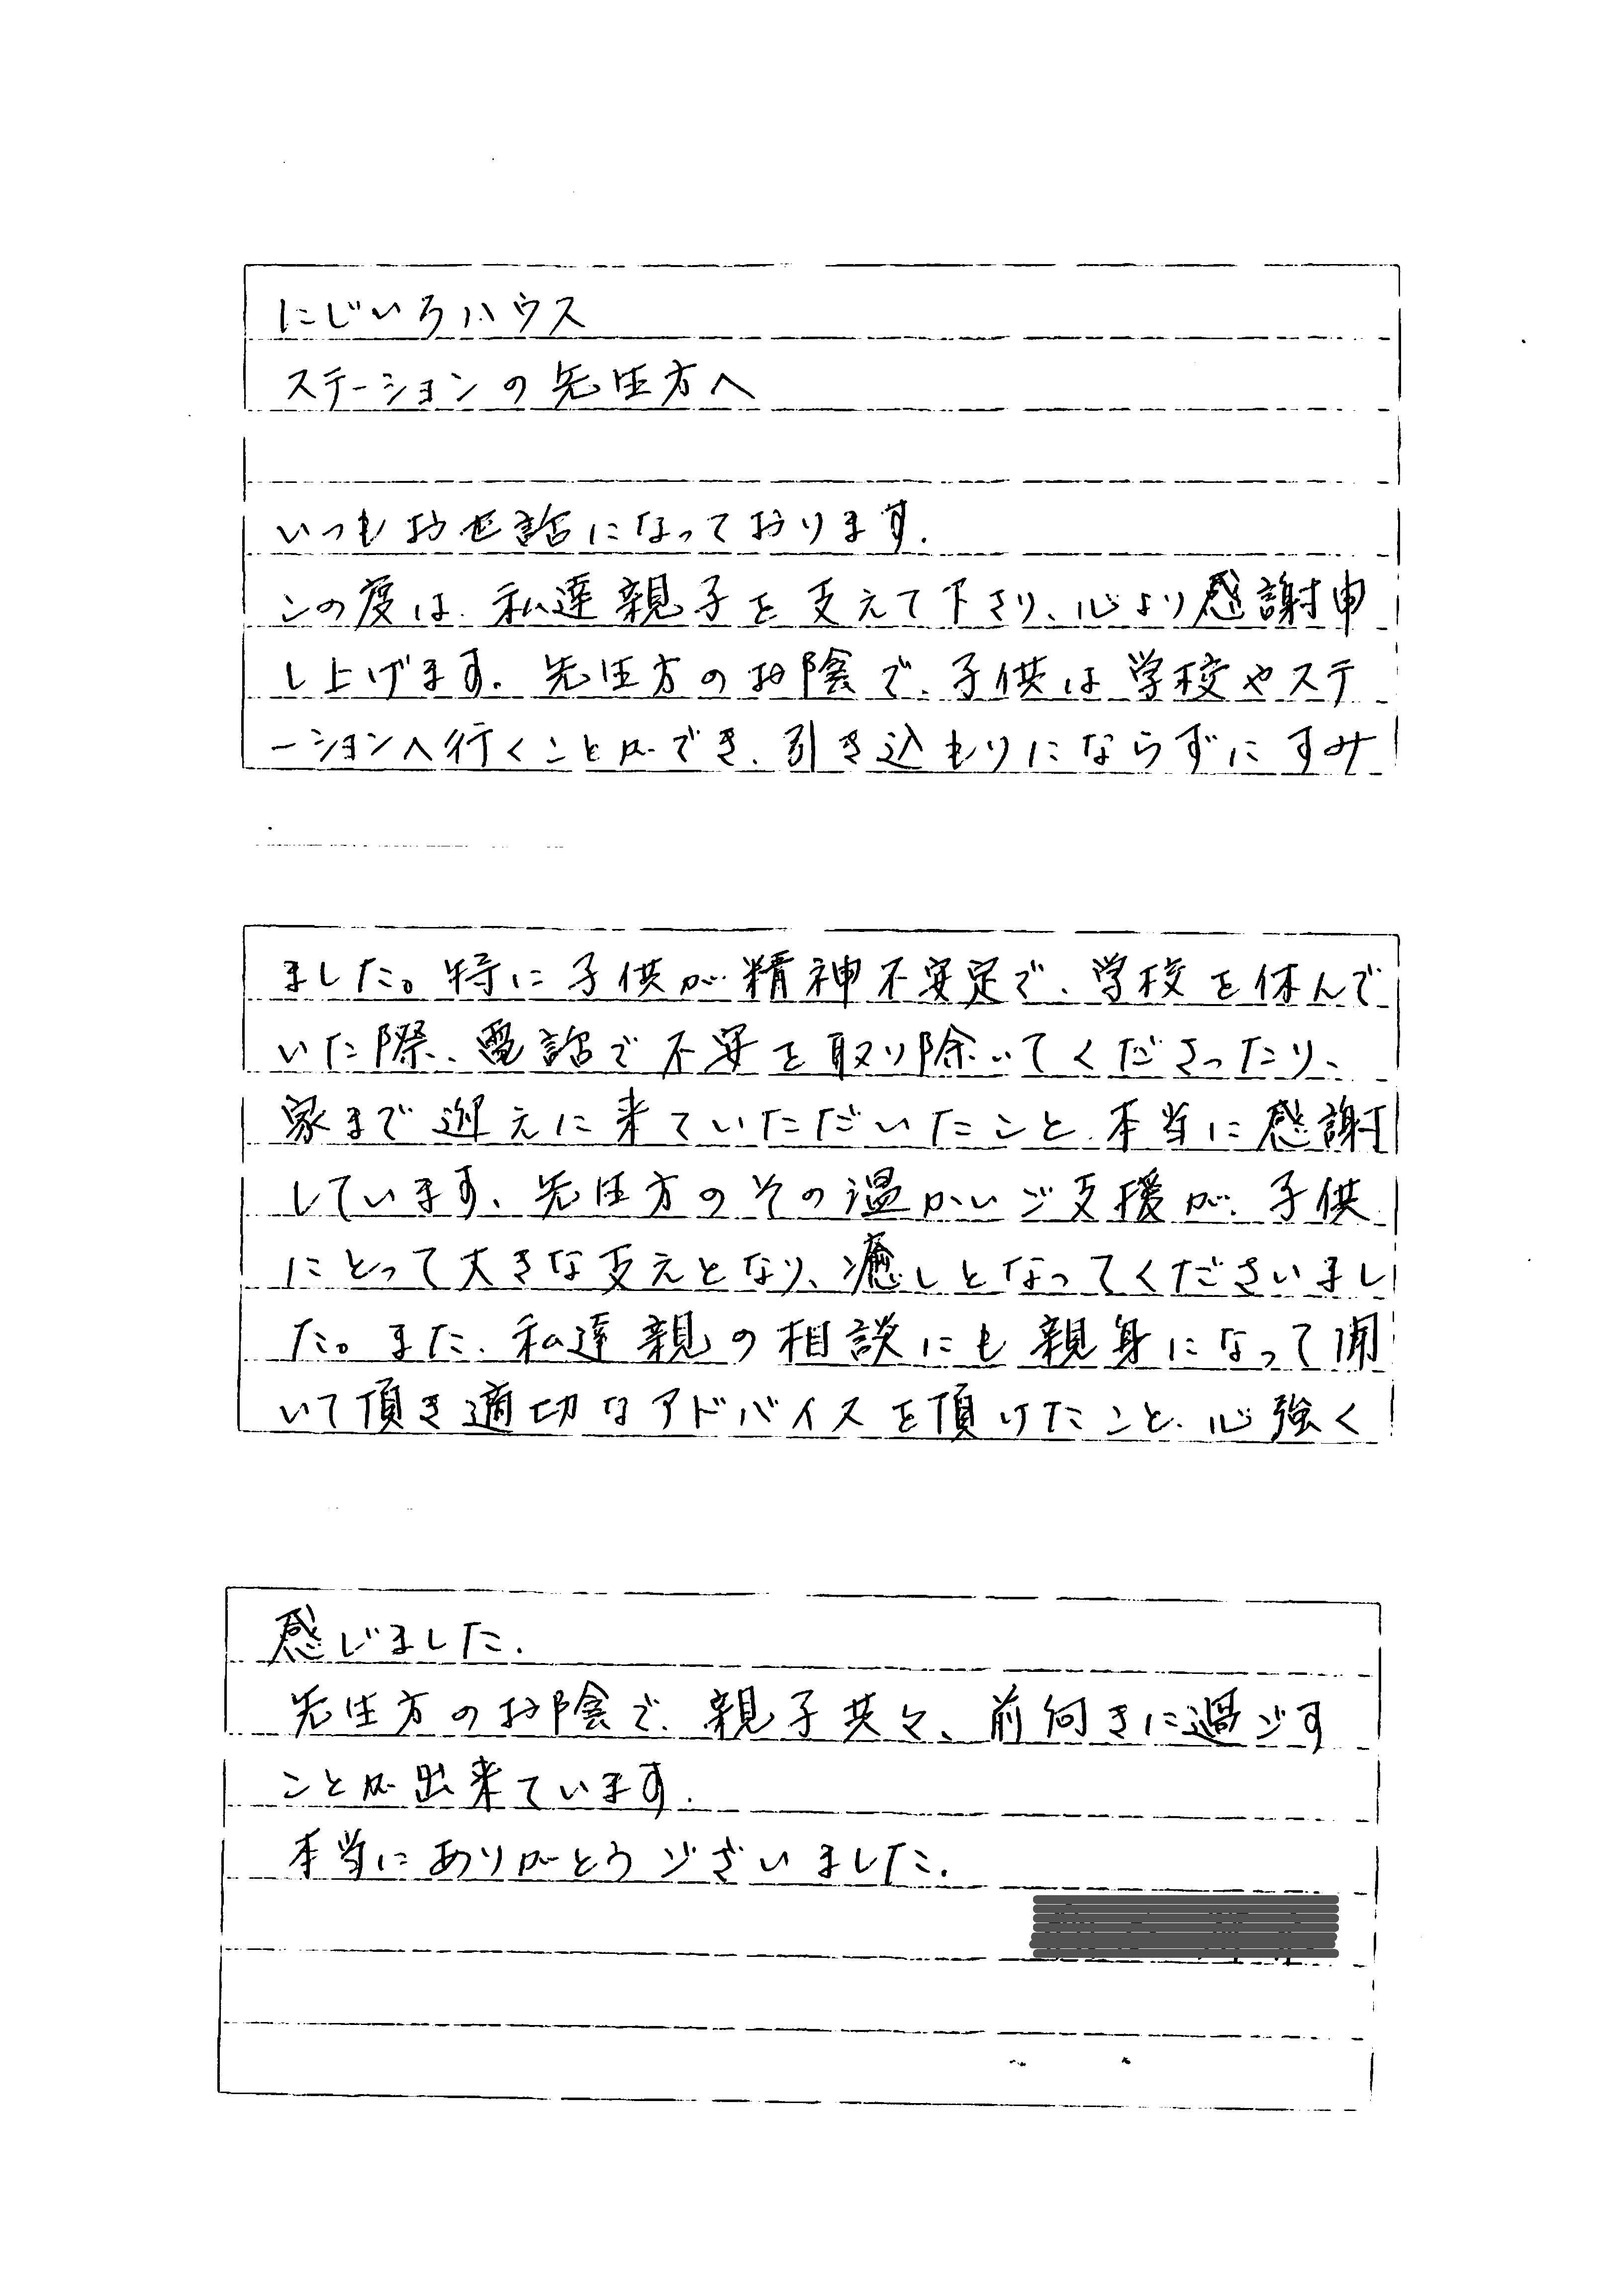 にじいろハウス
ステーションの先生方へ
いつもお世話になっております.
この度は、私達親子を支えて下さり、心より感謝申
し上げます. 先生方のお陰で、子供は学校やステ
ーションへ行くことができ、引き込もりにならずにすみ
ました。特に子供が精神不安定で、学校を休んで
いた際、電話で不安を取り除いてくださったり、
家まで迎えに来ていただいたこと、本当に感謝
しています、先生方のその温かいご支援が、子供
にとって大きな支えとなり、癒しとなってくださいまし
た。また、私達親の相談にも親身になって聞
いて頂き適切なアドバイスを頂けたこと、心強く
感じました.
先生方のお陰で、親子共々、前向きに過ごす
ことが出来ています.
本当にありがとうございました.